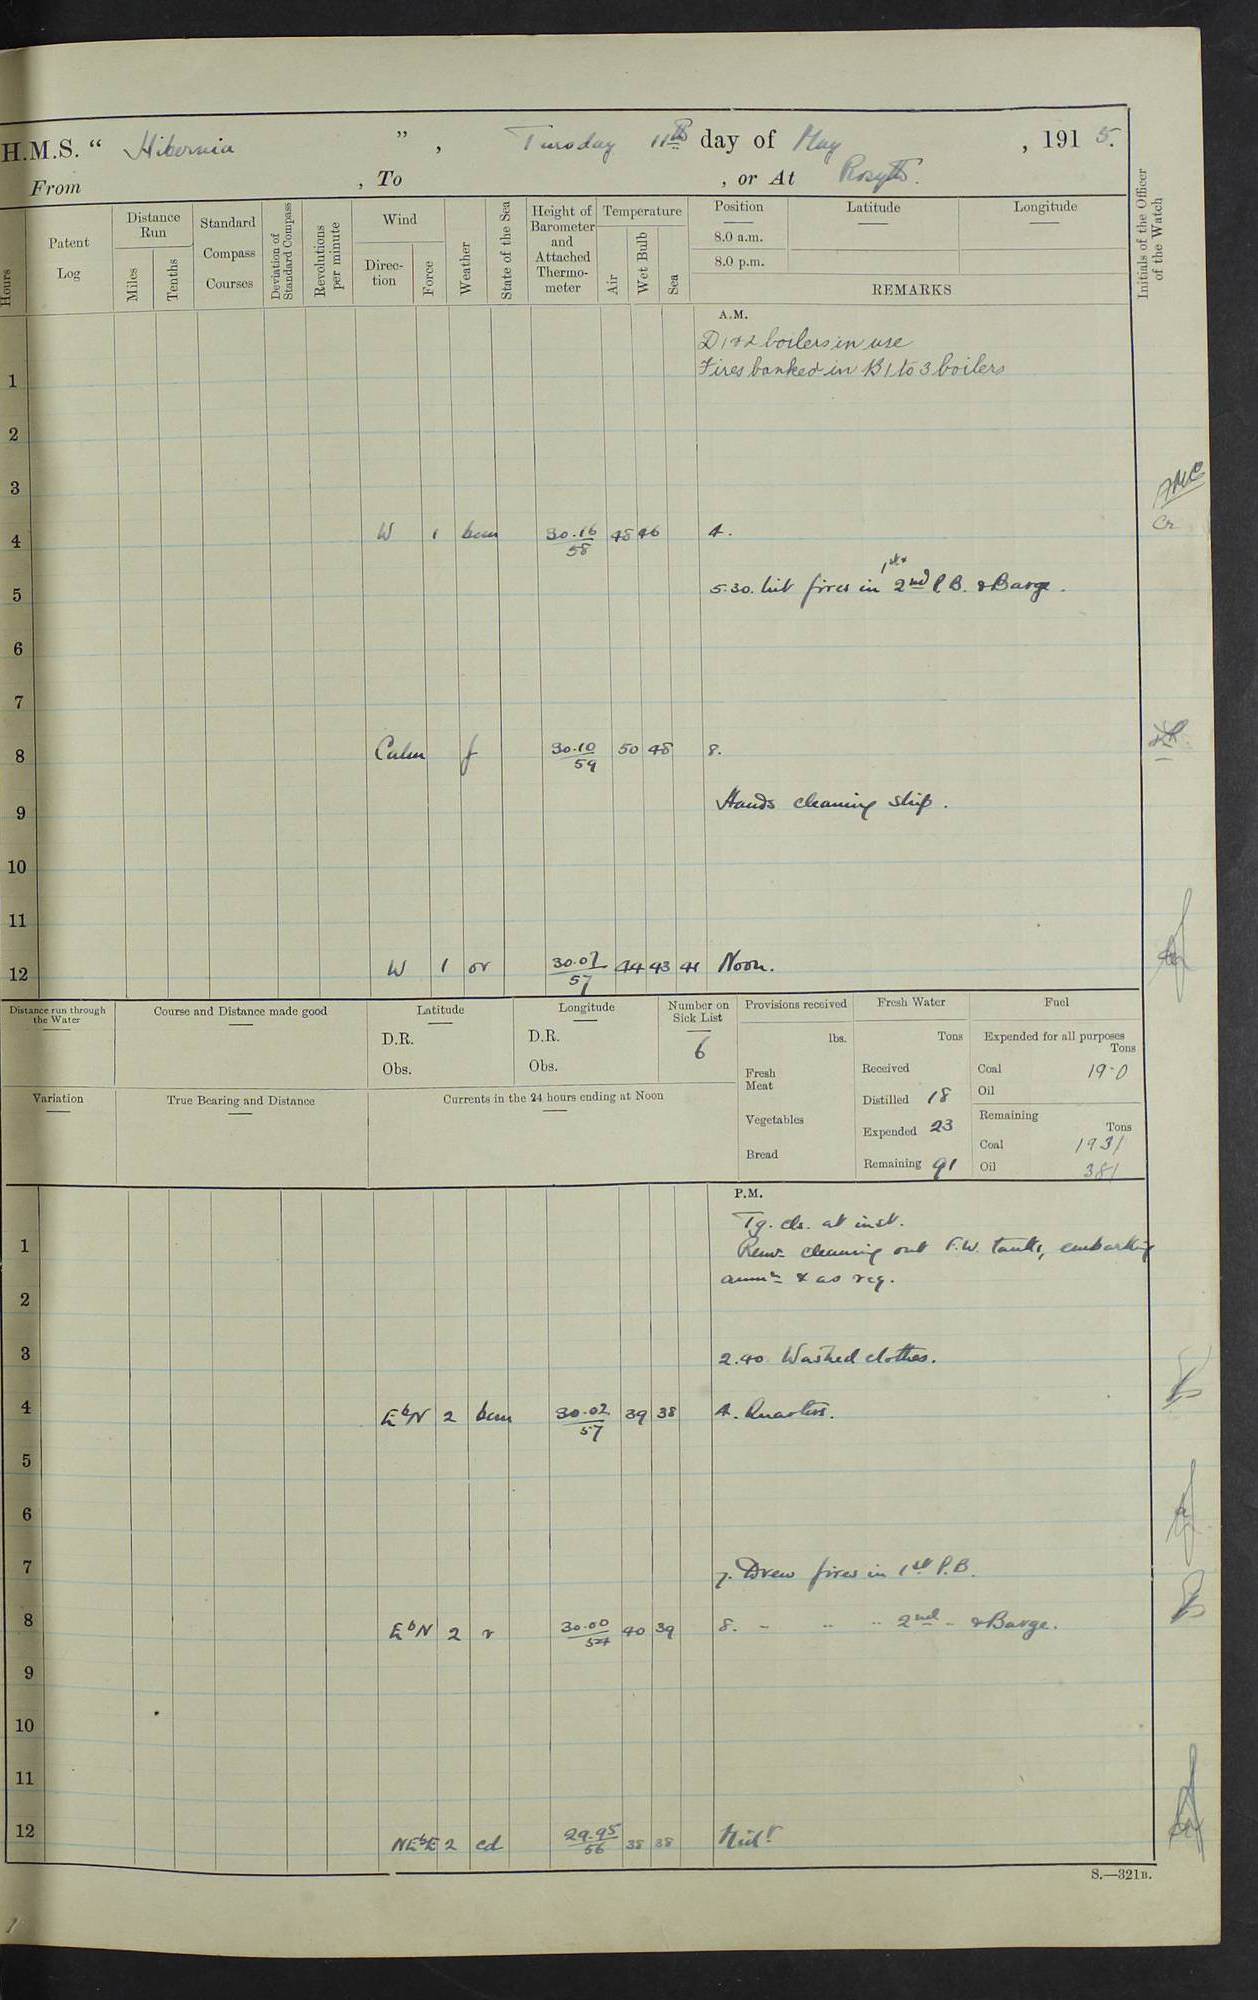 H.M.S. “ Hibernia ”, Tuesday 11th day of May, 1915.
From , To , or At Rosyth.
Hours
Patent Log
Distance Run
Miles
Tenths
Standard Compass Courses
Deviation of Standard Compass
Revolutions per minute
Wind
Direction
Force
Weather
State of the Sea
Height of Barometer and Attached Thermometer
Temperature
Air
Wet Bulb
Sea
Position
8.0 a.m.
8.0 p.m.
Latitude
Longitude
REMARKS
Initials of the Officer of the Watch
A.M.
D1&2 boilers in use
1 Fires banked in B1 to 3 boilers
2
3
4 W 1 bcm 30.16/58 48 46 4.
5 5.30. Lit fires in 1st & 2nd P.B. & Barge.
6
7
8 Calm f 30.10/59 50 48 8.
9 Hands cleaning ship.
10
11
12 W 1 or 30.07/57 44 43 41 Noon.
Distance run through the Water
Course and Distance made good
Latitude
D.R.
Obs.
Longitude
D.R.
Obs.
Number on Sick List
6
Provisions received
lbs.
Fresh Meat
Vegetables
Bread
Fresh Water
Tons
Received
Distilled 18
Expended 23
Remaining 91
Fuel
Expended for all purposes
Tons
Coal 19.0
Oil
Remaining
Tons
Coal 1931
Oil 381
Variation
True Bearing and Distance
Currents in the 24 hours ending at Noon
P.M.
Tg. cls. at inst.
1 Remr cleaning out F.W. tanks, embarking
2 ammn & as req.
3 2.40 Washed clothes.
4 EbN 2 bcm 30.02/57 39 38 4. Quarters.
5
6
7 7. Drew fires in 1st P.B.
8 EbN 2 r 30.00/57 40 39 8. " " " 2nd " & Barge.
9
10
11
12 NEbE 2 cd 29.95/56 38 38 Midt
S.—321B.